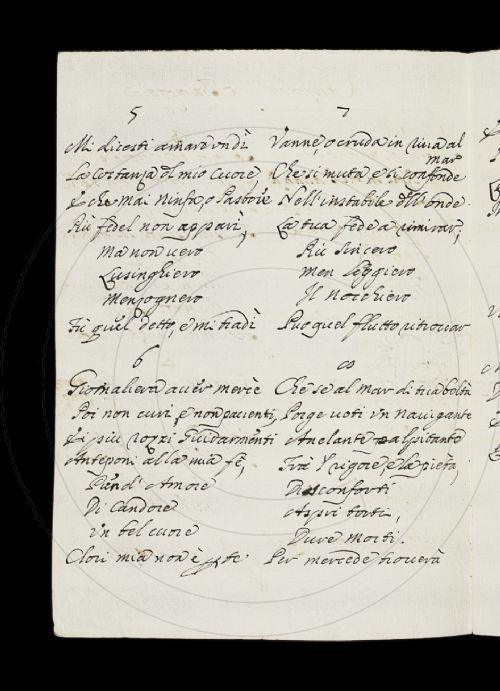 5
Mi dicesti amare un dì
La costanza dl mio Cuore
E che mai Ninfa, o Pastore
Più fedel non apparì,
Ma non vero
Lusinghiero
Menzognero
Fù quel detto, e mi tradì
6
Giornaliera aver mercè
Poi non curi, e non paventi,
E i più rozzi Guidarmenti
Anteponi alla mia fè,
Pien d'Amore
Di Candore
Un bel cuore
Clori mia non è p te
7
Vanne, o cruda in riva al
mar
Che si muta, e si confonde
Nell'instabile dll'onde
La tua fede a rimirar,
Più sincero
Men leggiero
Il Nocchiero
Può quel flutto ritrovar
8
Che se al Mar di tua beltà
Porge voti un Navigante
Anelante e palpitante
Trà l' rigore, e la pietà,
Disconforti
Aspri torti,
Dure morti.
Per mercede troverà